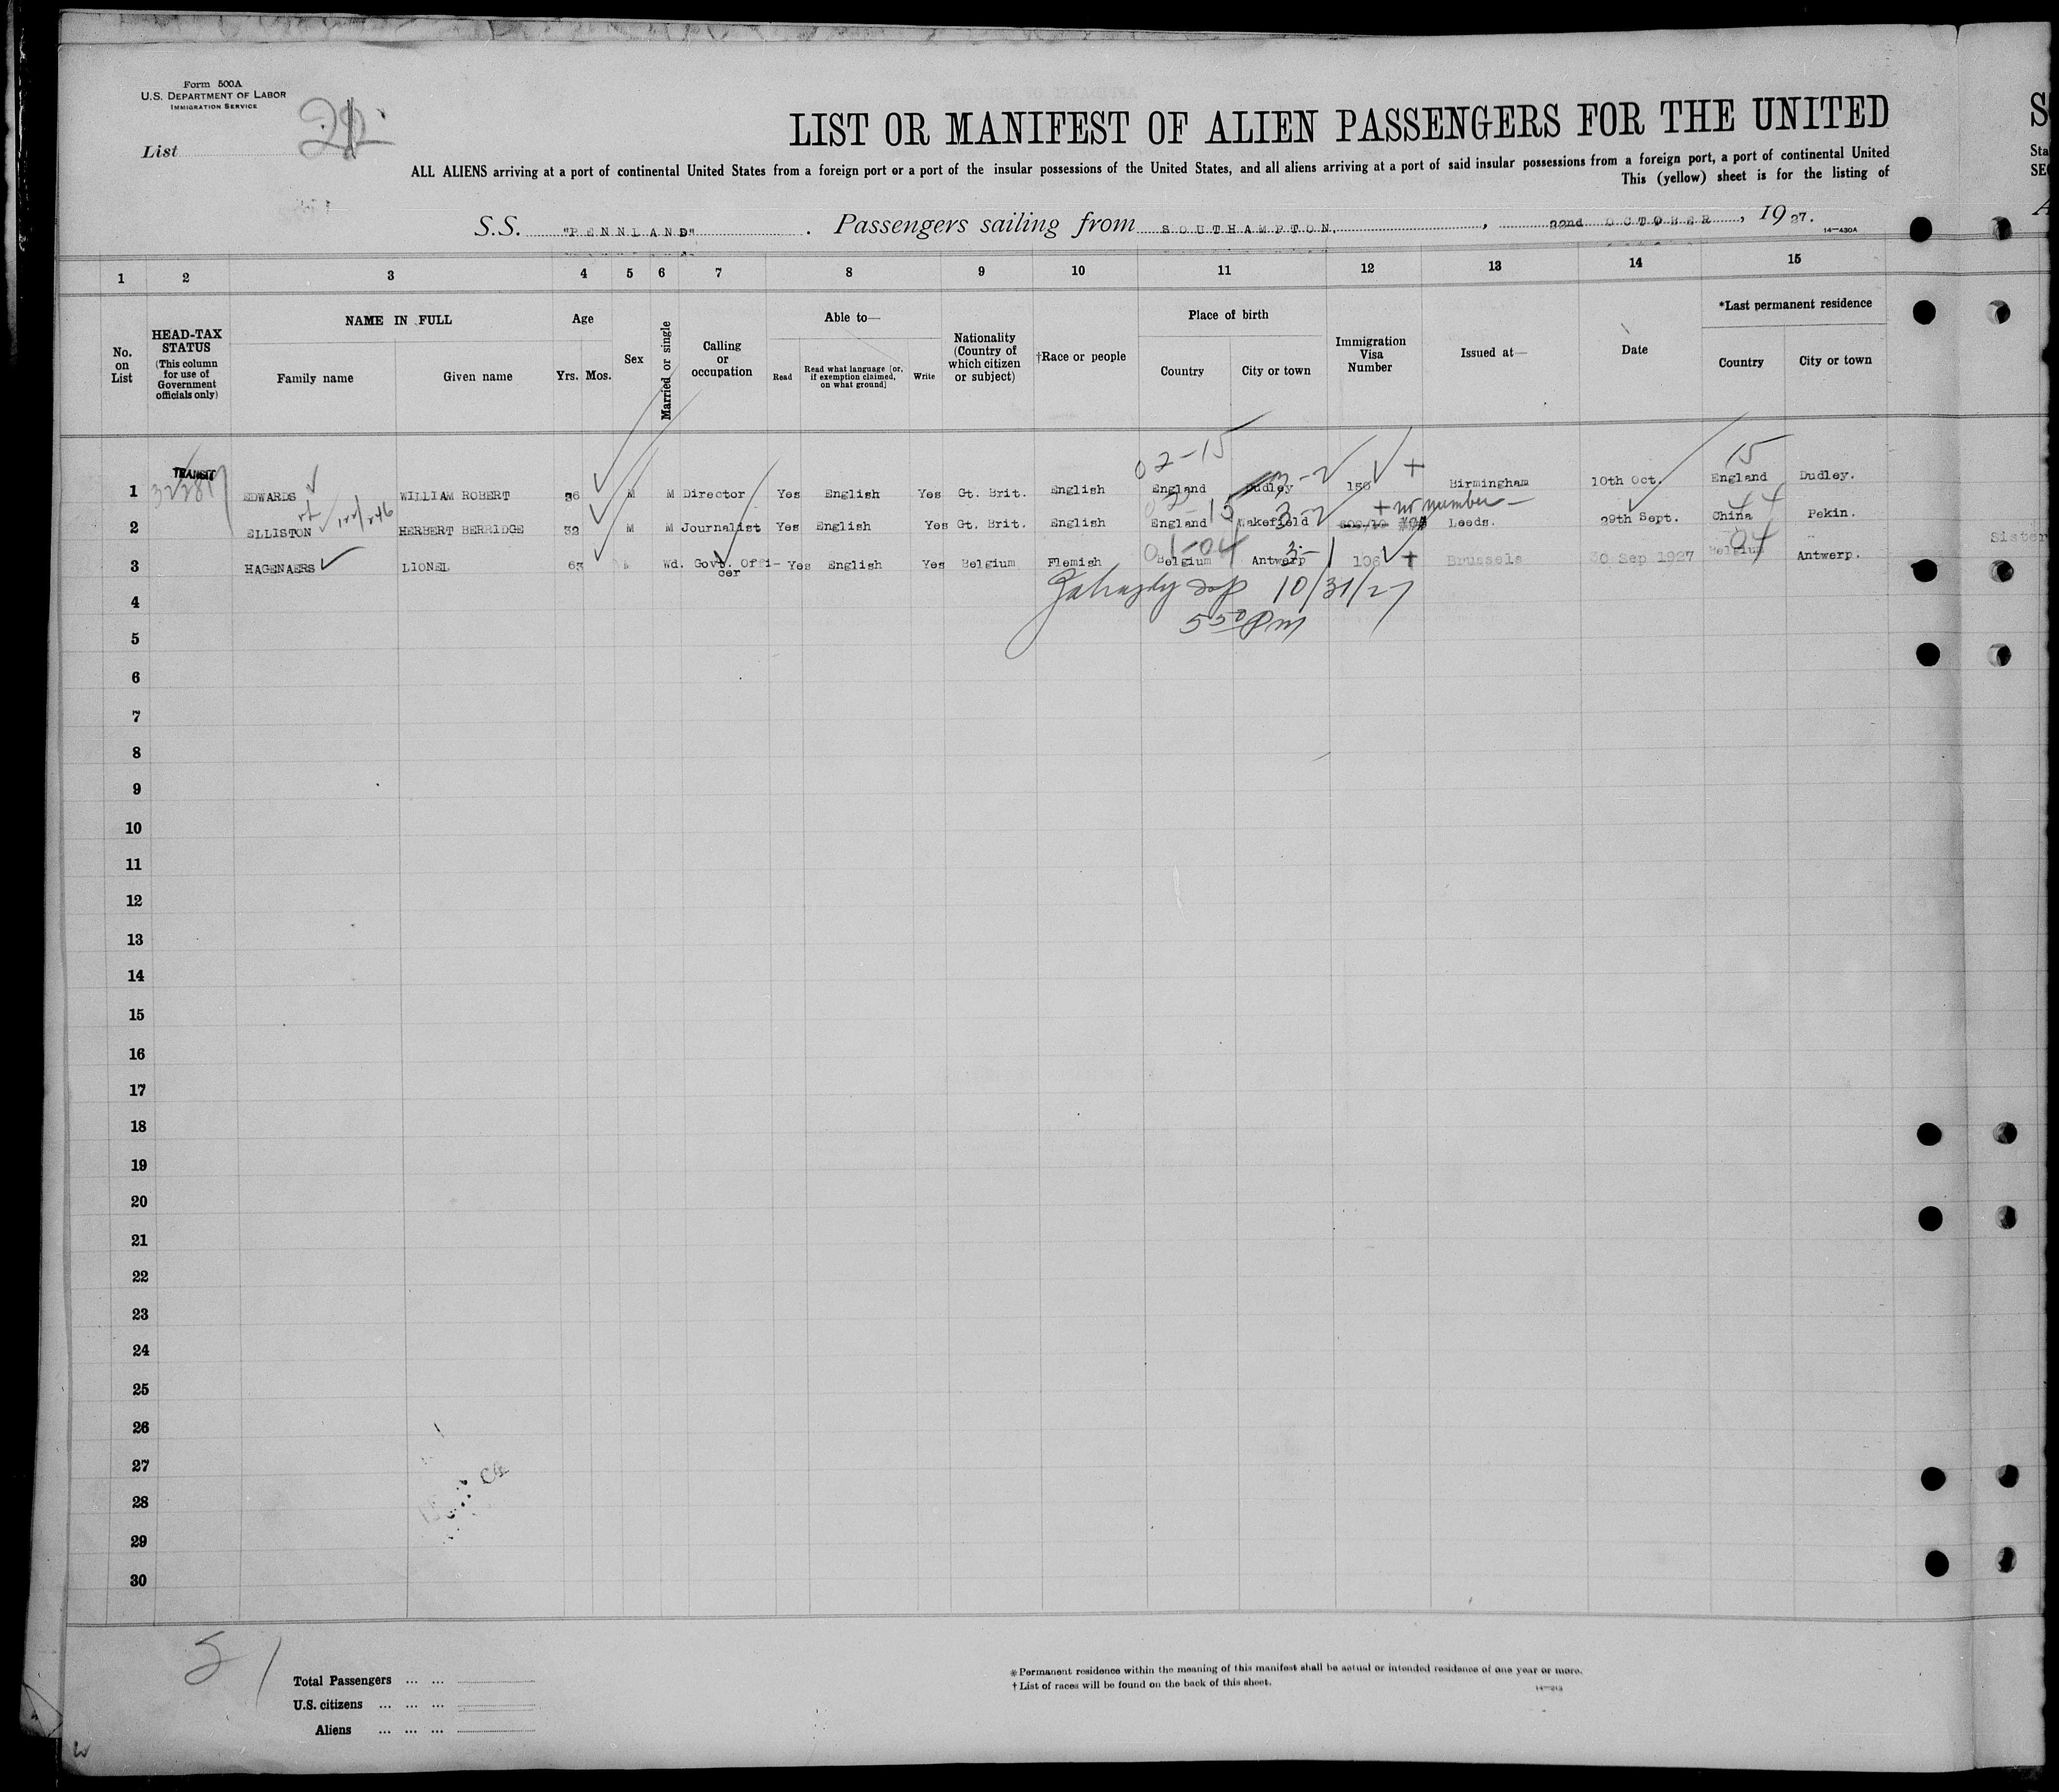 Form 500A
U.S. DEPARTMENT OF LABOR
IMMIGRATION SERVICE
List
LIST OR MANIFEST OF ALIEN PASSENGERS FOR THE UNITED
ALL ALIENS arriving at a port of continental United States from a foreign port or a port of the insular possessions of the United States, and all aliens arriving at a port of said insular possessions from a foreign port, a port of continental United
This (yellow) sheet is for the listing of
S.S. "PENNLAND". Passengers sailing from SOUTHAMPTON, , 22nd OCTOBER, 1927.
14—430A
1 2 3 4 5 6 7 8 9 10 11 12 13 14 15
No. on List
HEAD-TAX STATUS (This column for use of Government officials only)
NAME IN FULL
Family name Given name
Age
Yrs. Mos.
Sex
Married or single
Calling or occupation
Able to—
Read
Read what language [or, if exemption claimed, on what ground]
Write
Nationality (Country of which citizen or subject)
†Race or people
Place of birth
Country City or town
Immigration Visa Number
Issued at—
Date
*Last permanent residence
Country City or town
02-15 15
1 TRANSIT EDWARDS WILLIAM ROBERT M M Director Yes English Yes Gt. Brit. English England Dudley 3-2 + Birmingham 10th Oct. England Dudley.
+ no number —
2 ELLISTON HERBERT BERRIDGE 32 M M Journalist Yes English Yes Gt. Brit. English England Wakefield 3-2 Leeds. 29th Sept. China 44 Pekin.
01-04 3-1 04
3 HAGENAERS LIONEL 63 Wd. Govt. Offi- Yes English Yes Belgium Flemish Belgium Antwerp 106 + Brussels 30 Sep 1927 Belgium Antwerp.
cer
10/31/27
5 50 PM
4
5
6
7
8
9
10
11
12
13
14
15
16
17
18
19
20
21
22
23
24
25
26
27
28
29
30
Total Passengers ... ...
U.S. citizens ... ... ...
Aliens ... ... ...
*Permanent residence within the meaning of this manifest shall be actual or intended residence of one year or more.
†List of races will be found on the back of this sheet.
14—213
S
Sta
SEC
A
Sister